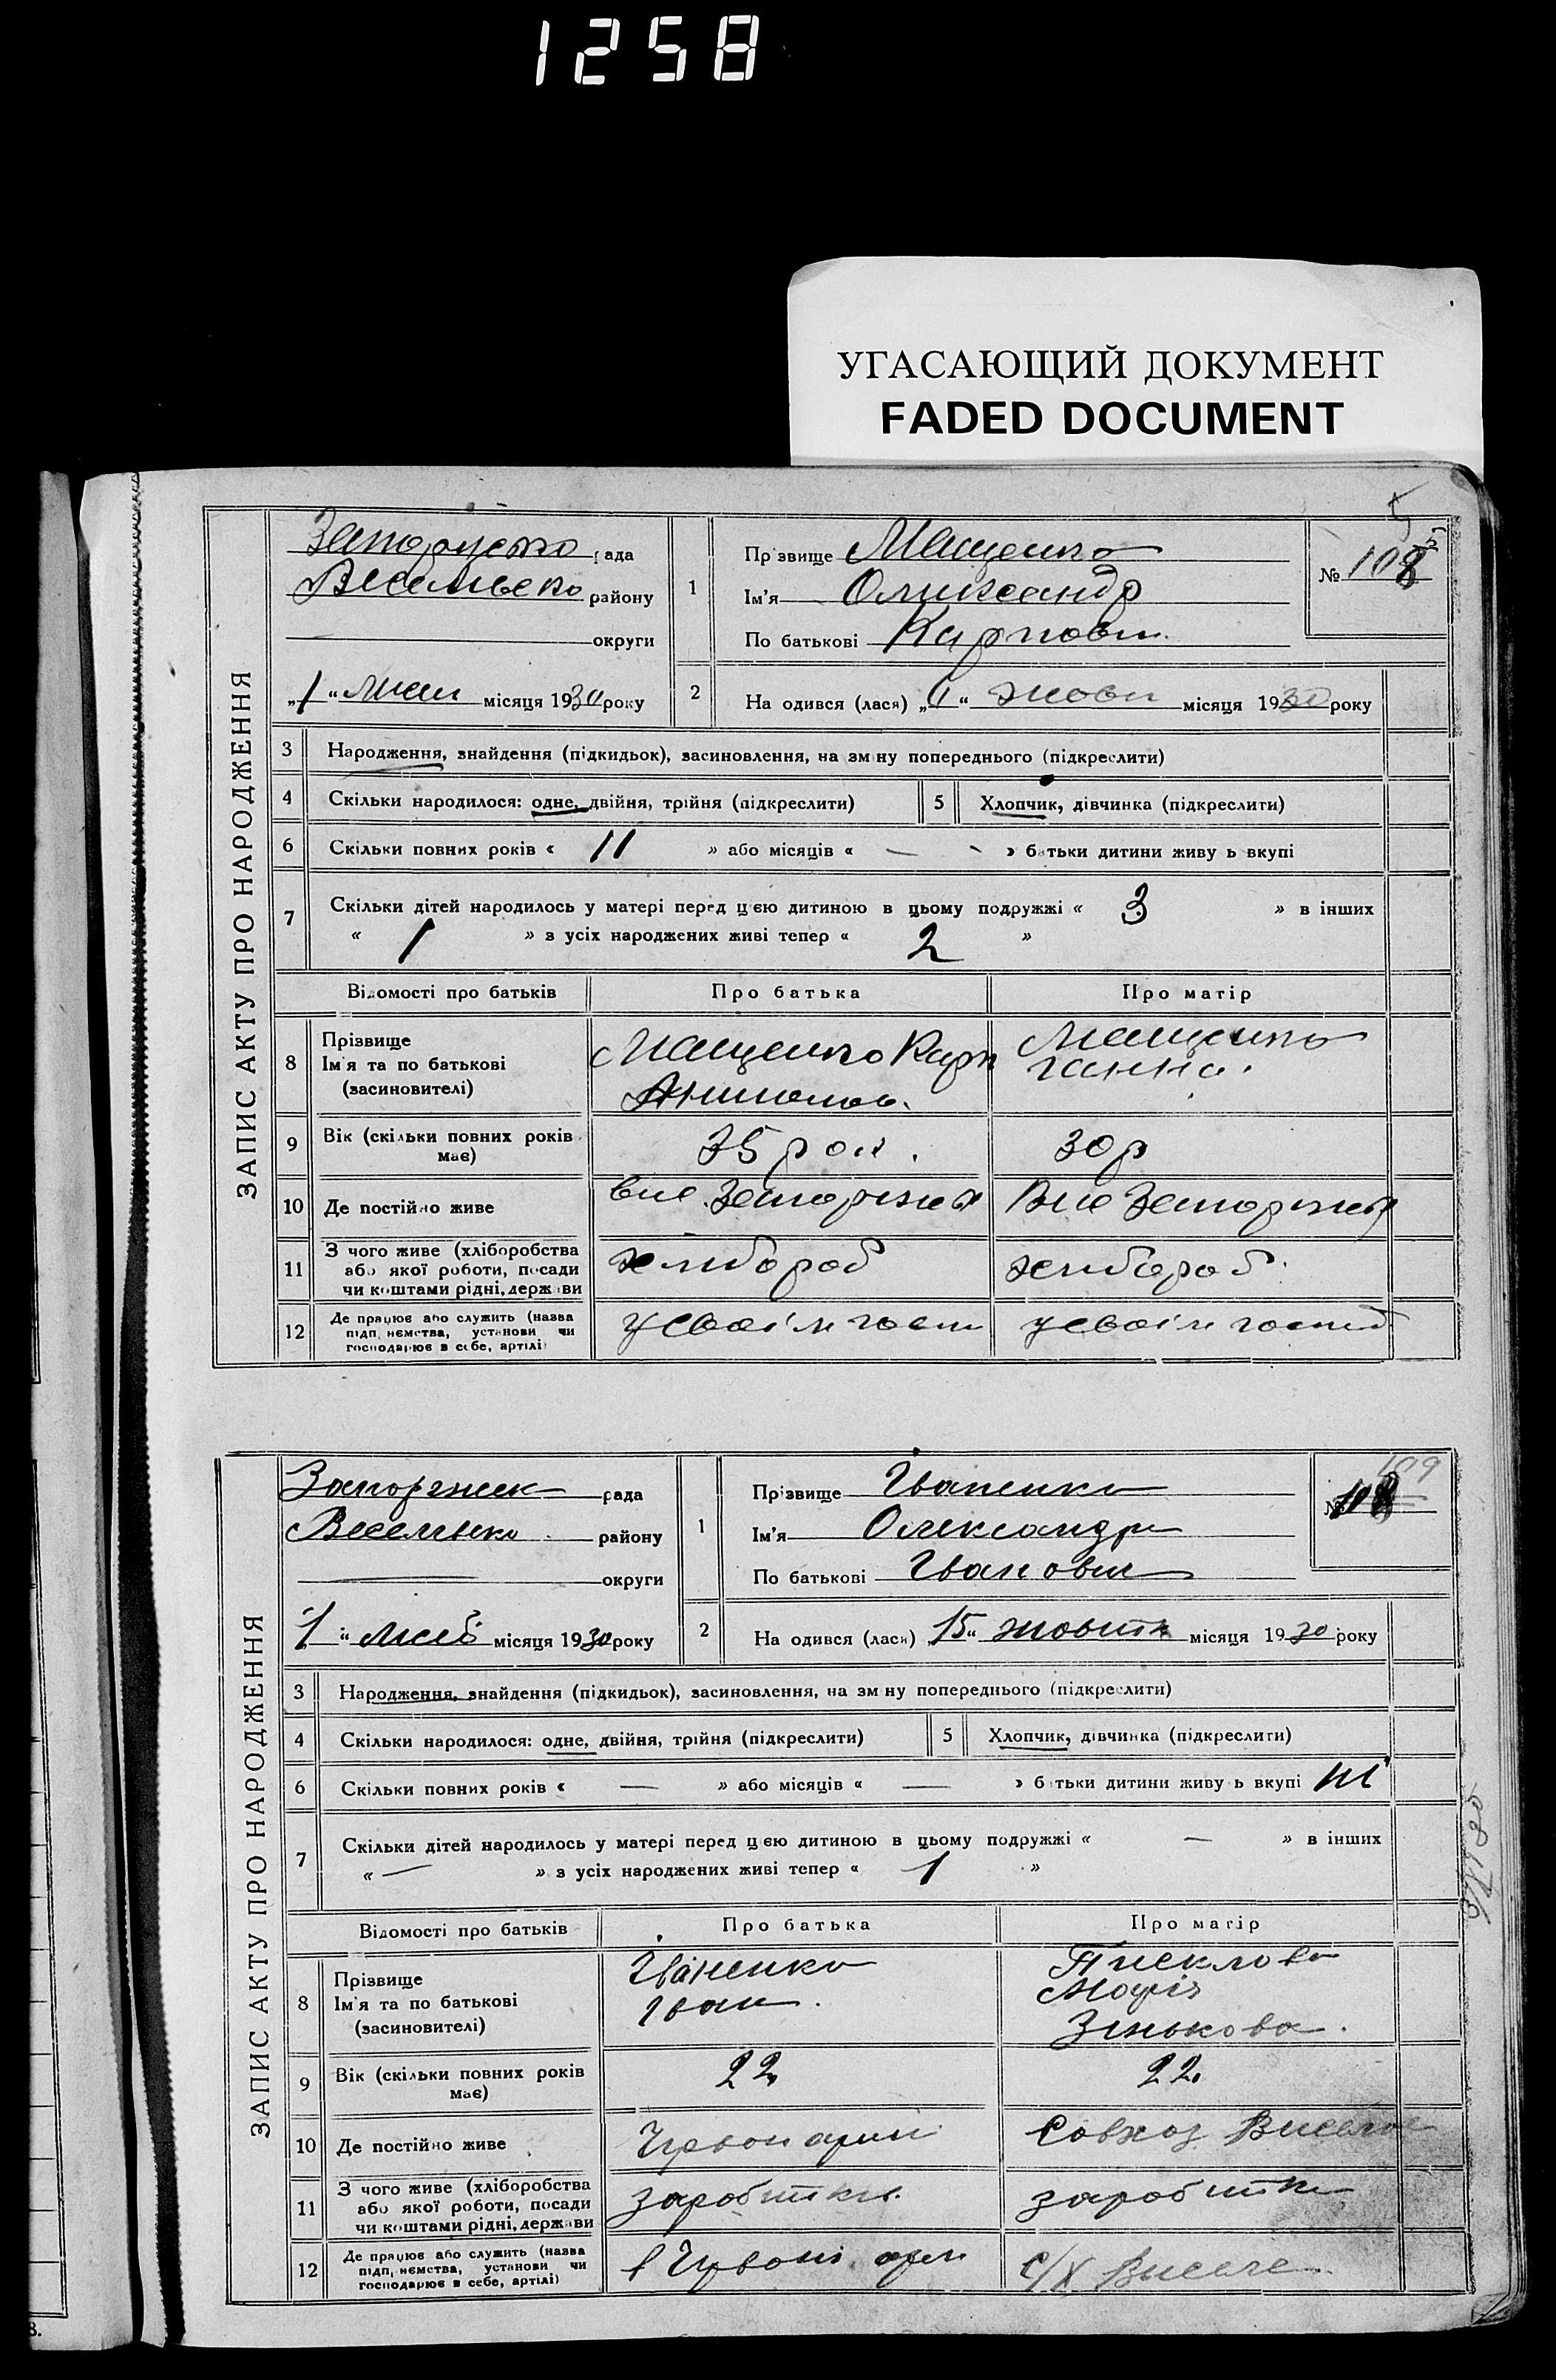 1258
УГАСАЮЩИЙ ДОКУМЕНТ
FADED DOCUMENT
5
ЗАПИС АКТУ ПРО НАРОДЖЕННЯ
рада
району
округи
„1“ місяця 1930 року
1
Прізвище Мащенко
Ім'я Олександр
По батькові Карпович
№ 108
2 На одився (лася) „ “ жовт місяця 1930 року
3 Народження, знайдення (підкидьок), засиновлення, на зм ну попереднього (підкреслити)
4 Скільки народилося: одне, двійня, трійня (підкреслити) 5 Хлопчик, дівчинка (підкреслити)
6 Скільки повних років « 11 » або місяців « — » батьки дитини живу ь вкупі
7 Скільки дітей народилось у матері перед цією дитиною в цьому подружжі « 3 » в інших
« 1 » з усіх народжених живі тепер « 2 »
Відомості про батьків Про батька Про матір
8 Прізвище
Ім'я та по батькові
(засиновителі)
Мащенко Карп
Мащенко
Ганна.
9 Вік (скільки повних років має) 35 рок. 30 р
10 Де постійно живе
11 З чого живе (хліборобства
або якої роботи, посади
чи коштами рідні, держави
хлібороб хлібороб.
12 Де працює або служить (назва
підп, ємства, установи чи
господарює в себе, артілі)
у своїм госп у своїм господ
ЗАПИС АКТУ ПРО НАРОДЖЕННЯ
рада
району
округи
„1“ місяця 1930 року
1
Прізвище Іваненко
Ім'я Олександр
По батькові Іванович
109
№ 108
2 На одився (лася) „15“ жовтн місяця 1930 року
3 Народження, знайдення (підкидьок), засиновлення, на зм ну попереднього (підкреслити)
4 Скільки народилося: одне, двійня, трійня (підкреслити) 5 Хлопчик, дівчинка (підкреслити)
6 Скільки повних років « — » або місяців « — » б тьки дитини живу ь вкупі ні
7 Скільки дітей народилось у матері перед цією дитиною в цьому подружжі « — » в інших
« — » з усіх народжених живі тепер « 1 »
Відомості про батьків Про батька Про матір
8 Прізвище
Ім'я та по батькові
(засиновителі)
Іваненко
Іван.
Зінькова.
9 Вік (скільки повних років має) 22 22
10 Де постійно живе
Совхоз
11 З чого живе (хліборобства
або якої роботи, посади
чи коштами рідні, держави
заробітки заробітки
12 Де працює або служить (назва
підп, ємства, установи чи
господарює в себе, артілі)
с/х